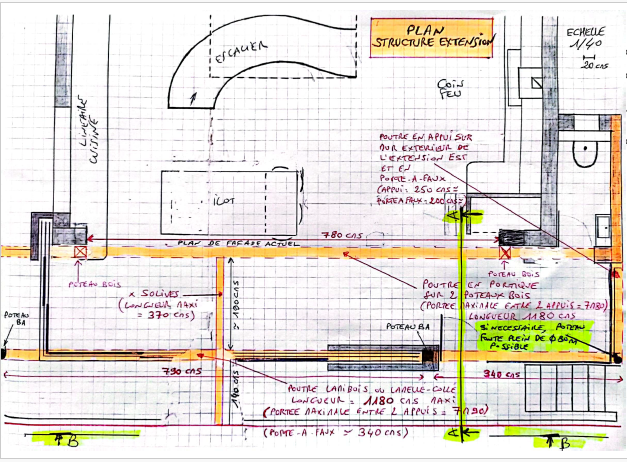 PLAN
STRUCTURE EXTENSION
ECHELLE
1/40
20 cms
ESCALIER
COIN
FEU
LINEAIRE
CUISINE
POUTRE EN APPUI SUR
MUR EXTERIEUR DE
L'EXTENSION EST
ET EN
PORTE-A-FAUX
(APPUI = 250 cms =
PORTE A FAUX = 200 cms)
ILOT
A
780 cms
PLAN DE FACADE ACTUEL
POTEAU BOIS
POTEAU BOIS
x SOLIVES
(LONGUEUR MAXI
= 370 cms)
≈ 190 cms
POUTRE EN PORTIQUE
SUR 2 POTEAUX BOIS
(PORTEE MAXIMALE ENTRE 2 APPUIS = 7M80)
LONGUEUR 1180 cms
POTEAU
BA
POTEAU BA
SI NECESSAIRE, POTEAU
FONTE PLEIN DE
POSSIBLE
790 cms
340 cms
140 cms
POUTRE LAMIBOIS OU LAMELLE-COLLE
LONGUEUR = 1180 cms MAXI
(PORTEE MAXIMALE ENTRE 2 APPUIS = 7M90)
(PORTE-A-FAUX ≃ 340 cms)
A
B
B